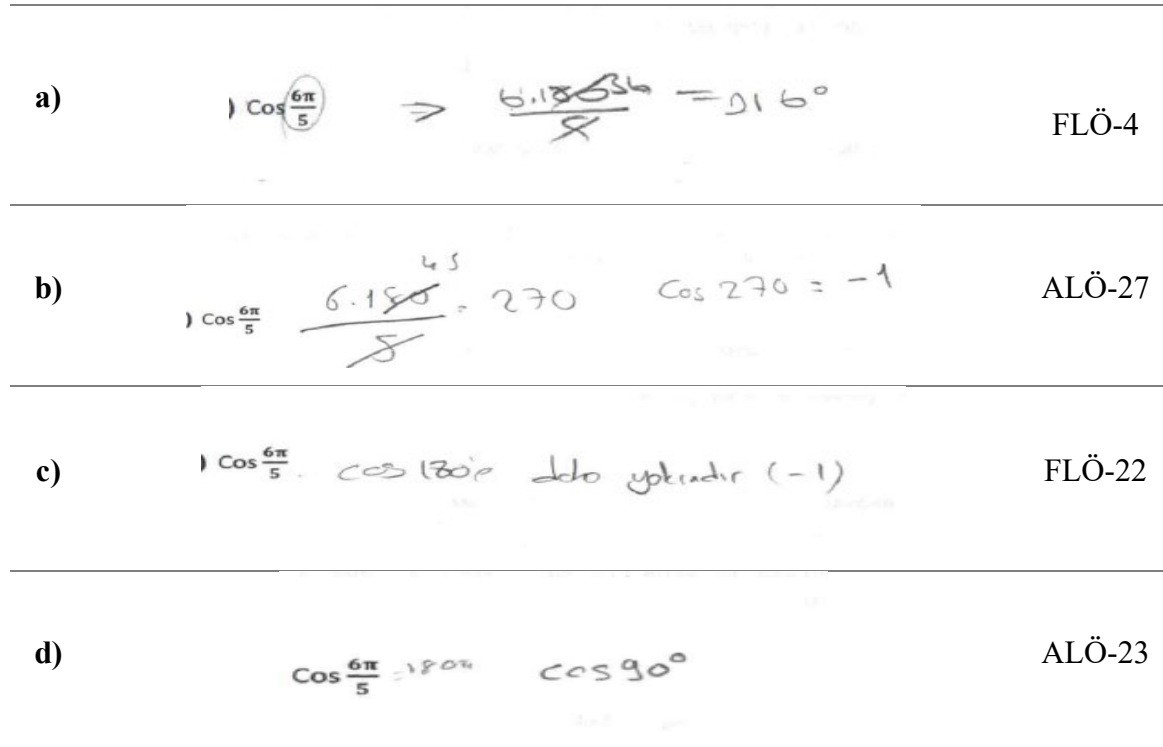 a) ) Cos 6π/5 ⇒ 6.180 36 / 5 = 216° FLÖ-4
b) ) Cos 6π/5 6.180 45 / 5 = 270 Cos 270 = -1 ALÖ-27
c) ) Cos 6π/5 . cos 180'e daha yakındır (-1) FLÖ-22
d) Cos 6π/5 = cos 90° ALÖ-23